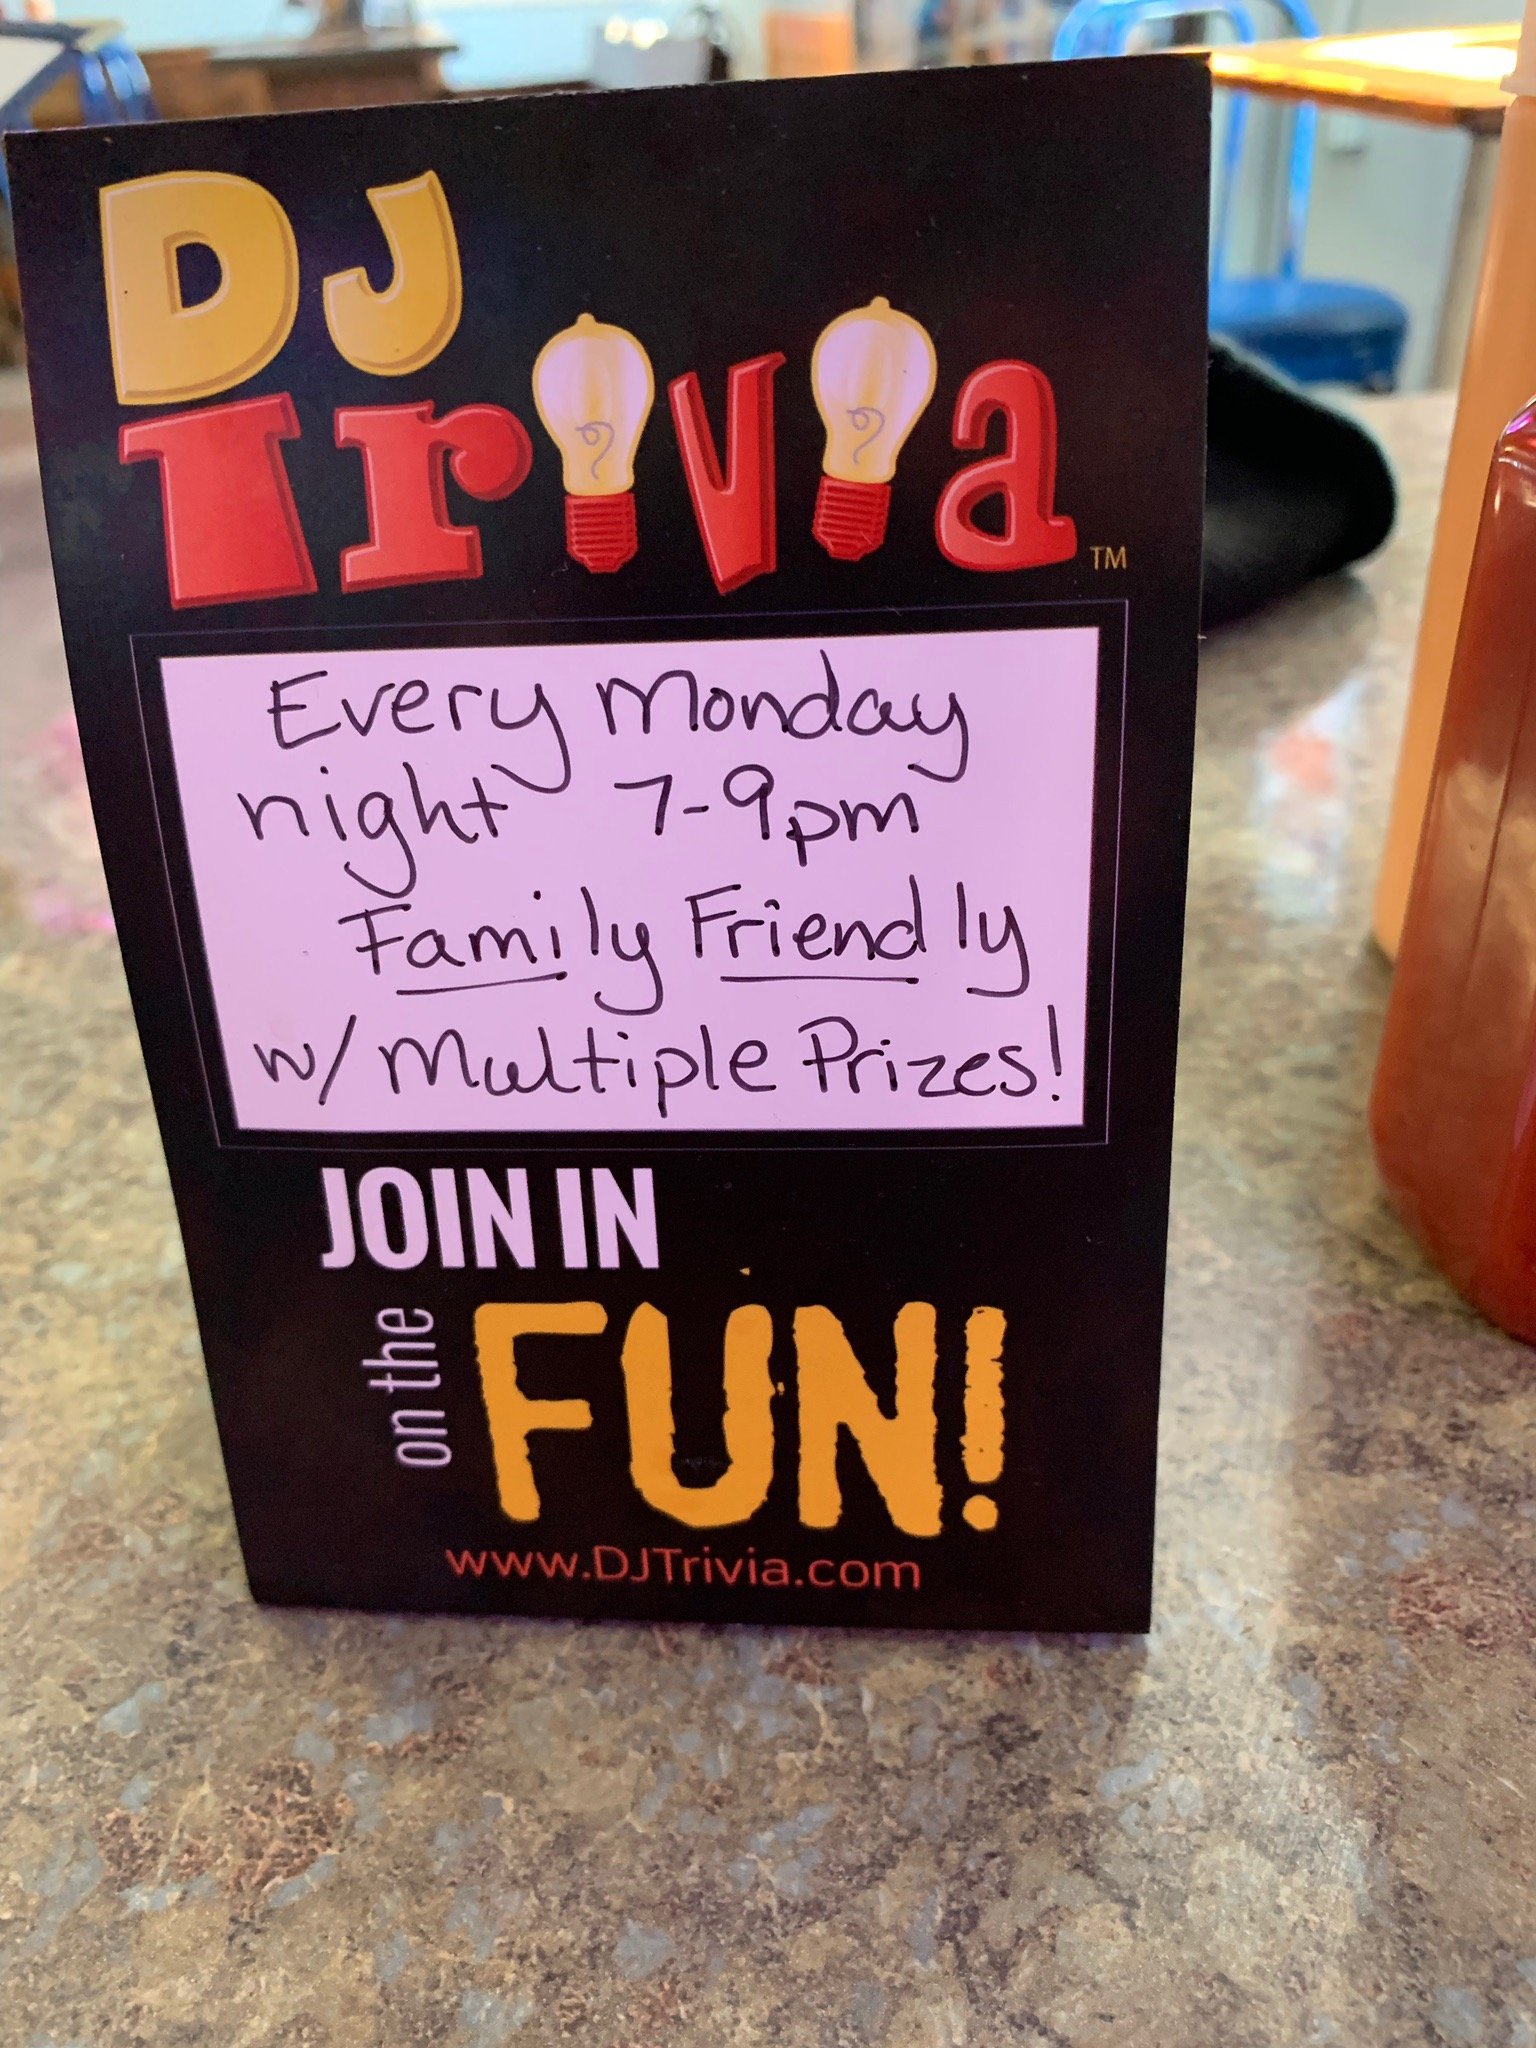 DJ
Trivia TM
Every Monday
night 7-9pm
Family Friendly
w/ Multiple Prizes!
JOIN IN
on the
FUN!
www.DJTrivia.com